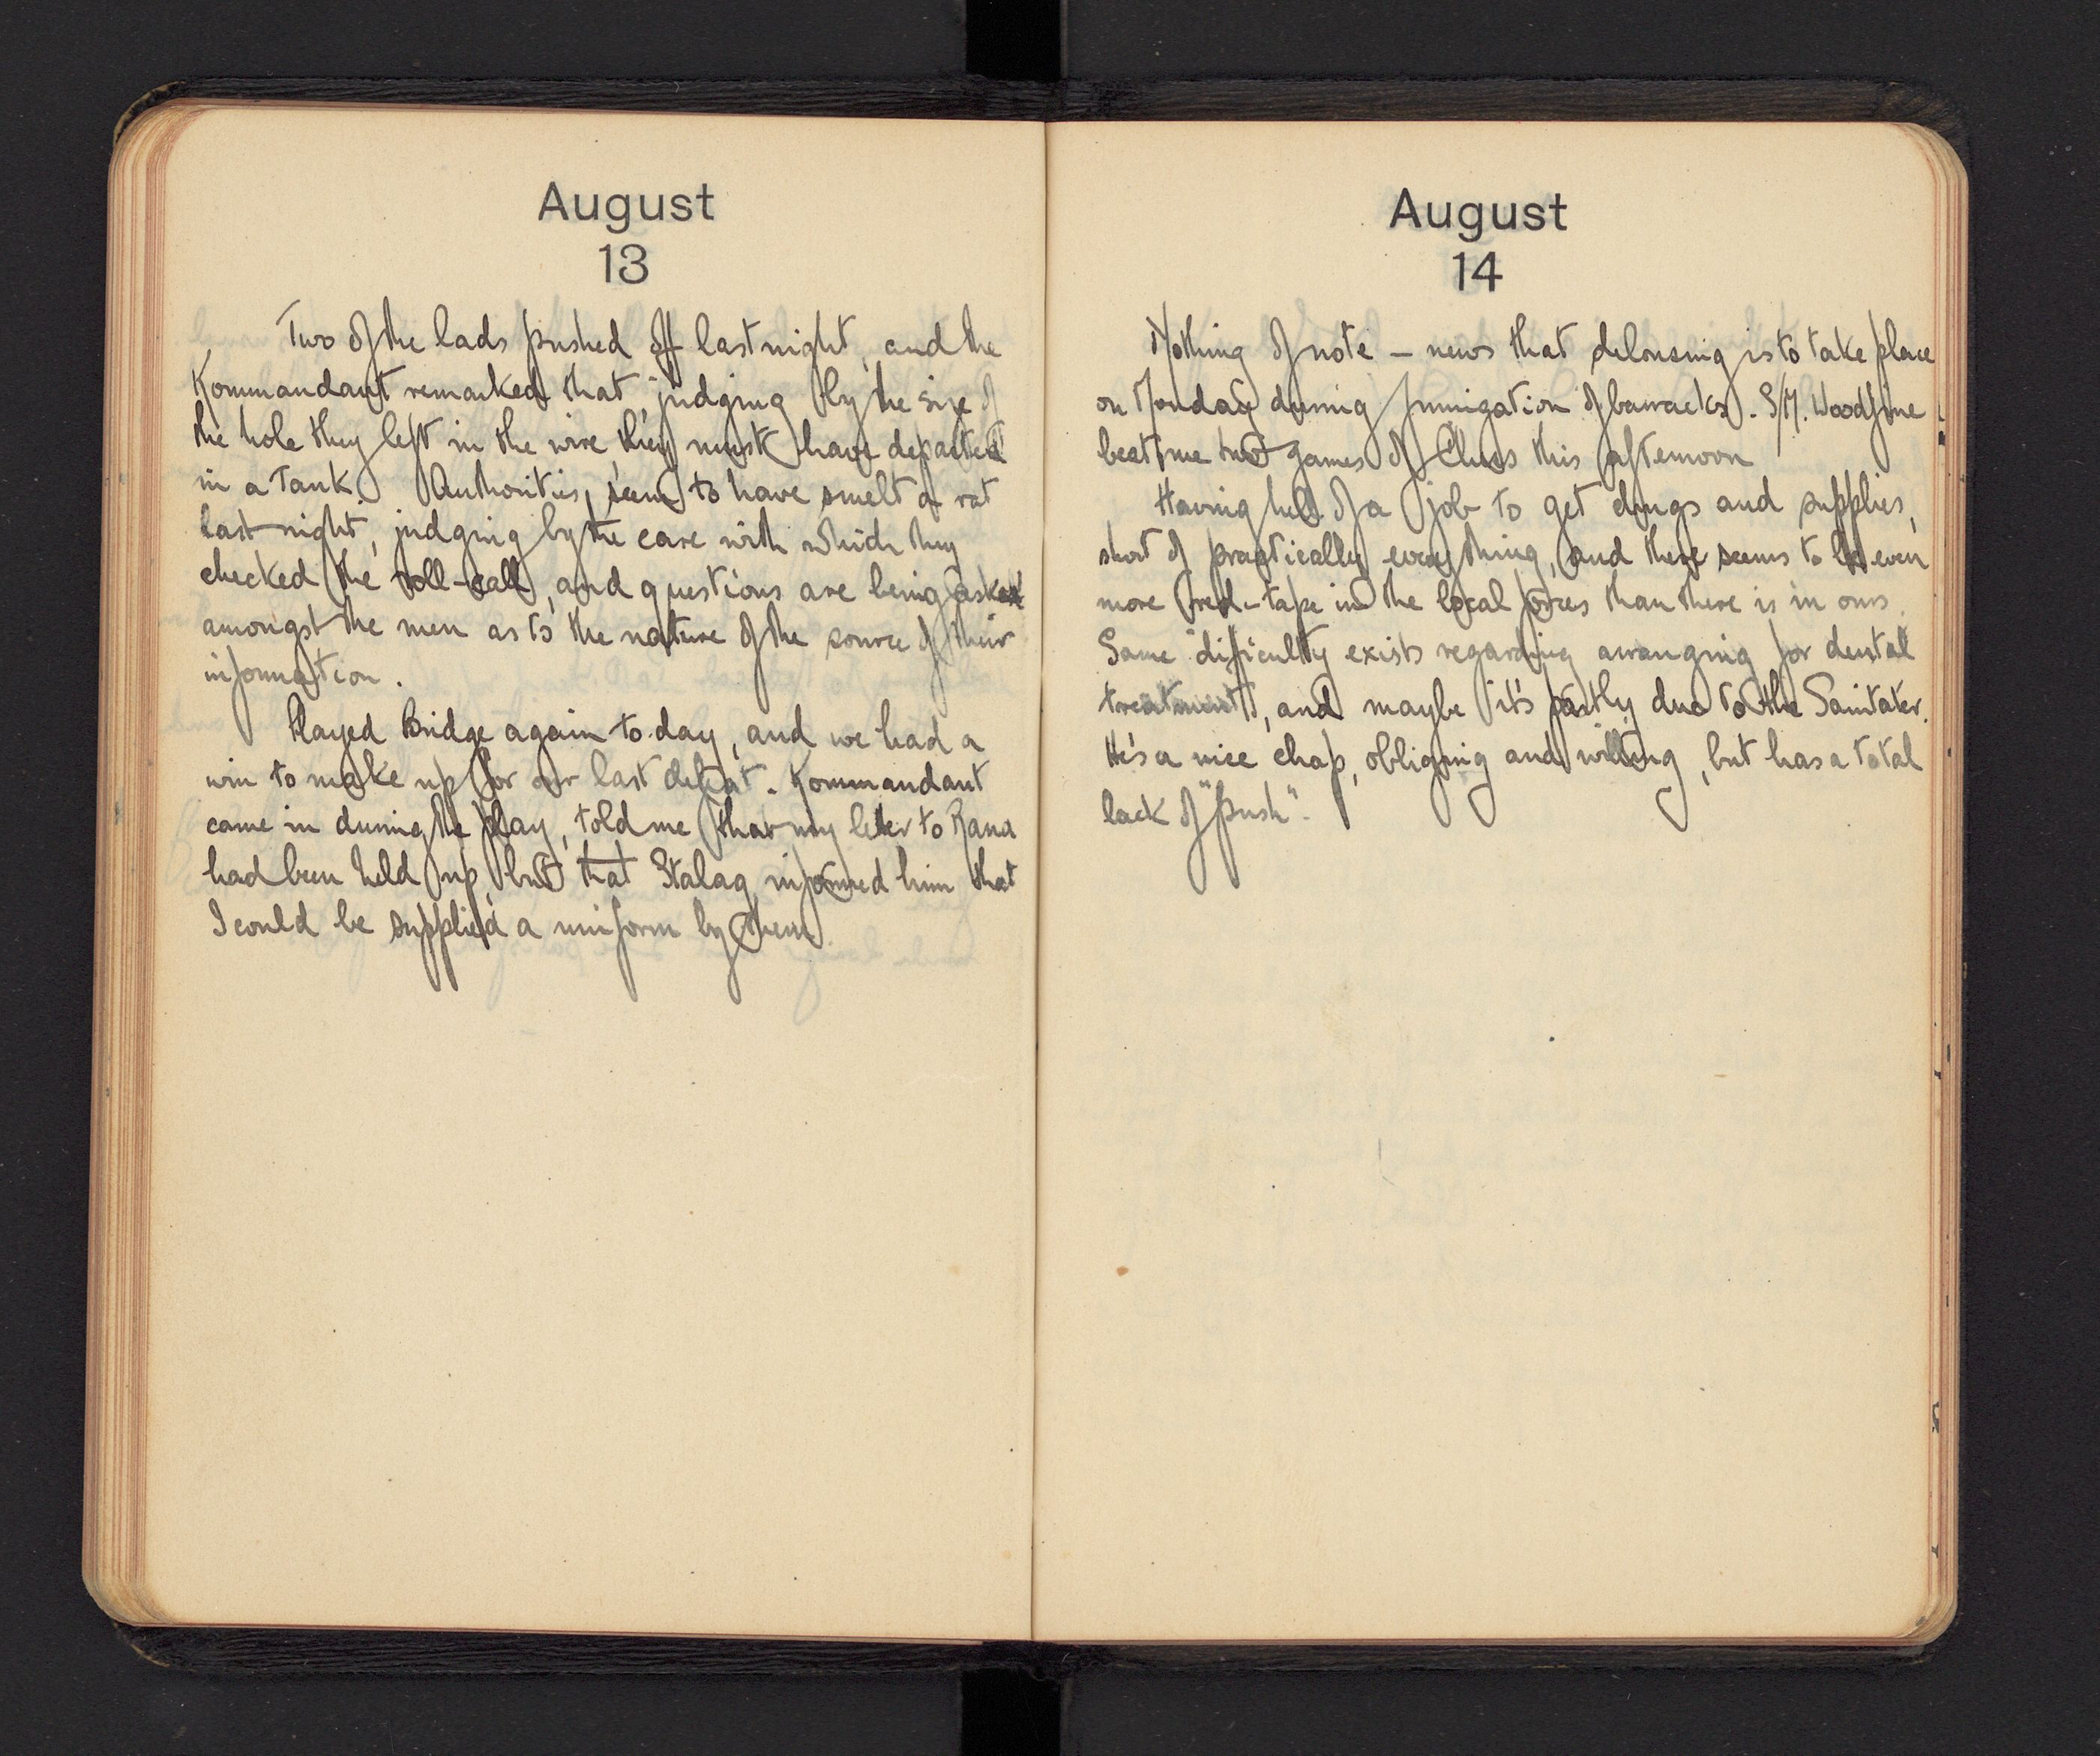 August
13
Two of the lads pushed off last night, and the
Kommandant remarked that, judging by the size of
the hole they left in the wire they must have departed
in a Tank. Authorities, seem to have smelt a rat
last night, judging by the care with which they
checked the roll-call, and questions are being asked
amongst the men as to the nature of the source of their
information.
Played Bridge again to-day, and we had a
win to make up for our last defeat. Kommandant
came in during the play, told me that my letter to Rana
had been held up, but that Stalag informed him that
I could be supplied a uniform by them
August
14
Nothing of note - news that delousing is to take place
on Monday during fumigation of barracks. S/M. Woodfine
beat me two games of Chess this afternoon
Having hell of a job to get drugs and supplies,
short of practically everything, and there seems to be even
more red-tape in the local forces than there is in ours.
Same difficulty exists regarding arranging for dental
treatment, and maybe it's partly due to the Sanitater.
He's a nice chap, obliging and willing, but has a total
lack of "push".